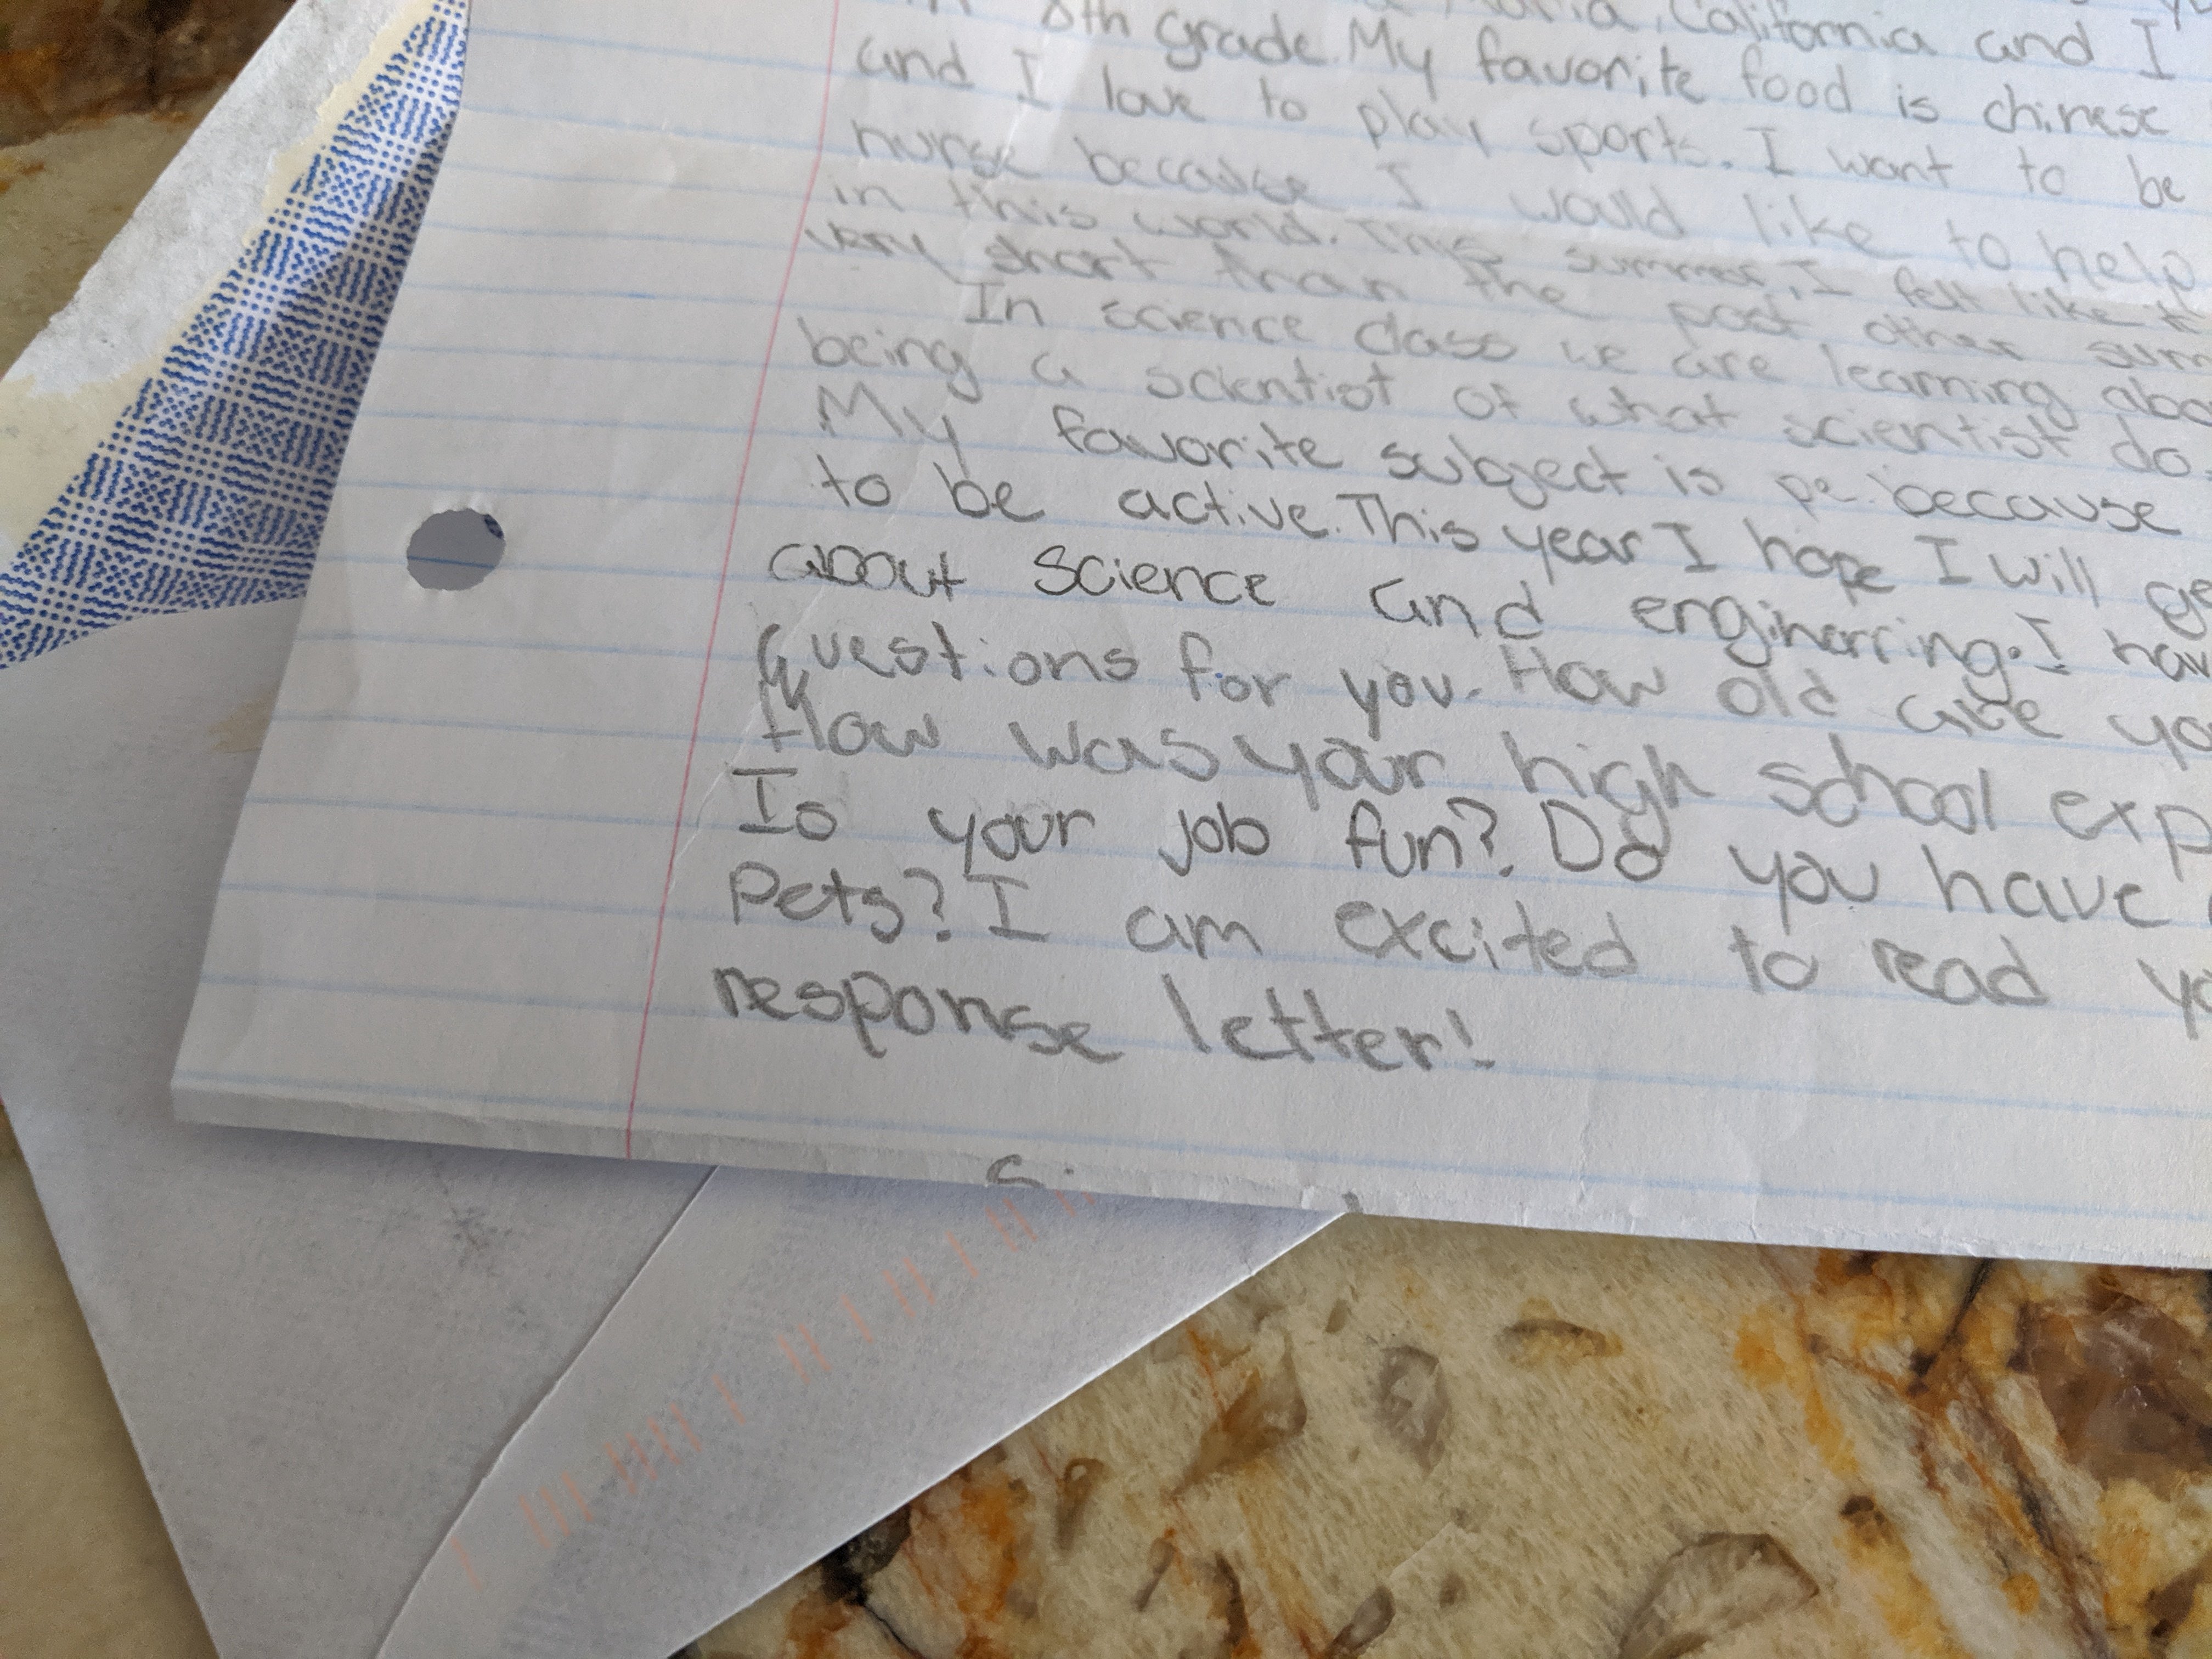 8th grade. My favorite food is chinese
California and I
and I love to play sports. I want to be
nurse because I would like to help
in this world. This summer, I felt like it
very short than the past other sum
In science class we are learning abo
being a scientist of what scientist do.
My favorite subject is pe because
to be active. This year I hope I will ge
about science and enginerring. I hav
questions for you. How old are yo
How was your high school exp
Is your job fun? Do you have
Pets? I am excited to read yo
response letter!
Si